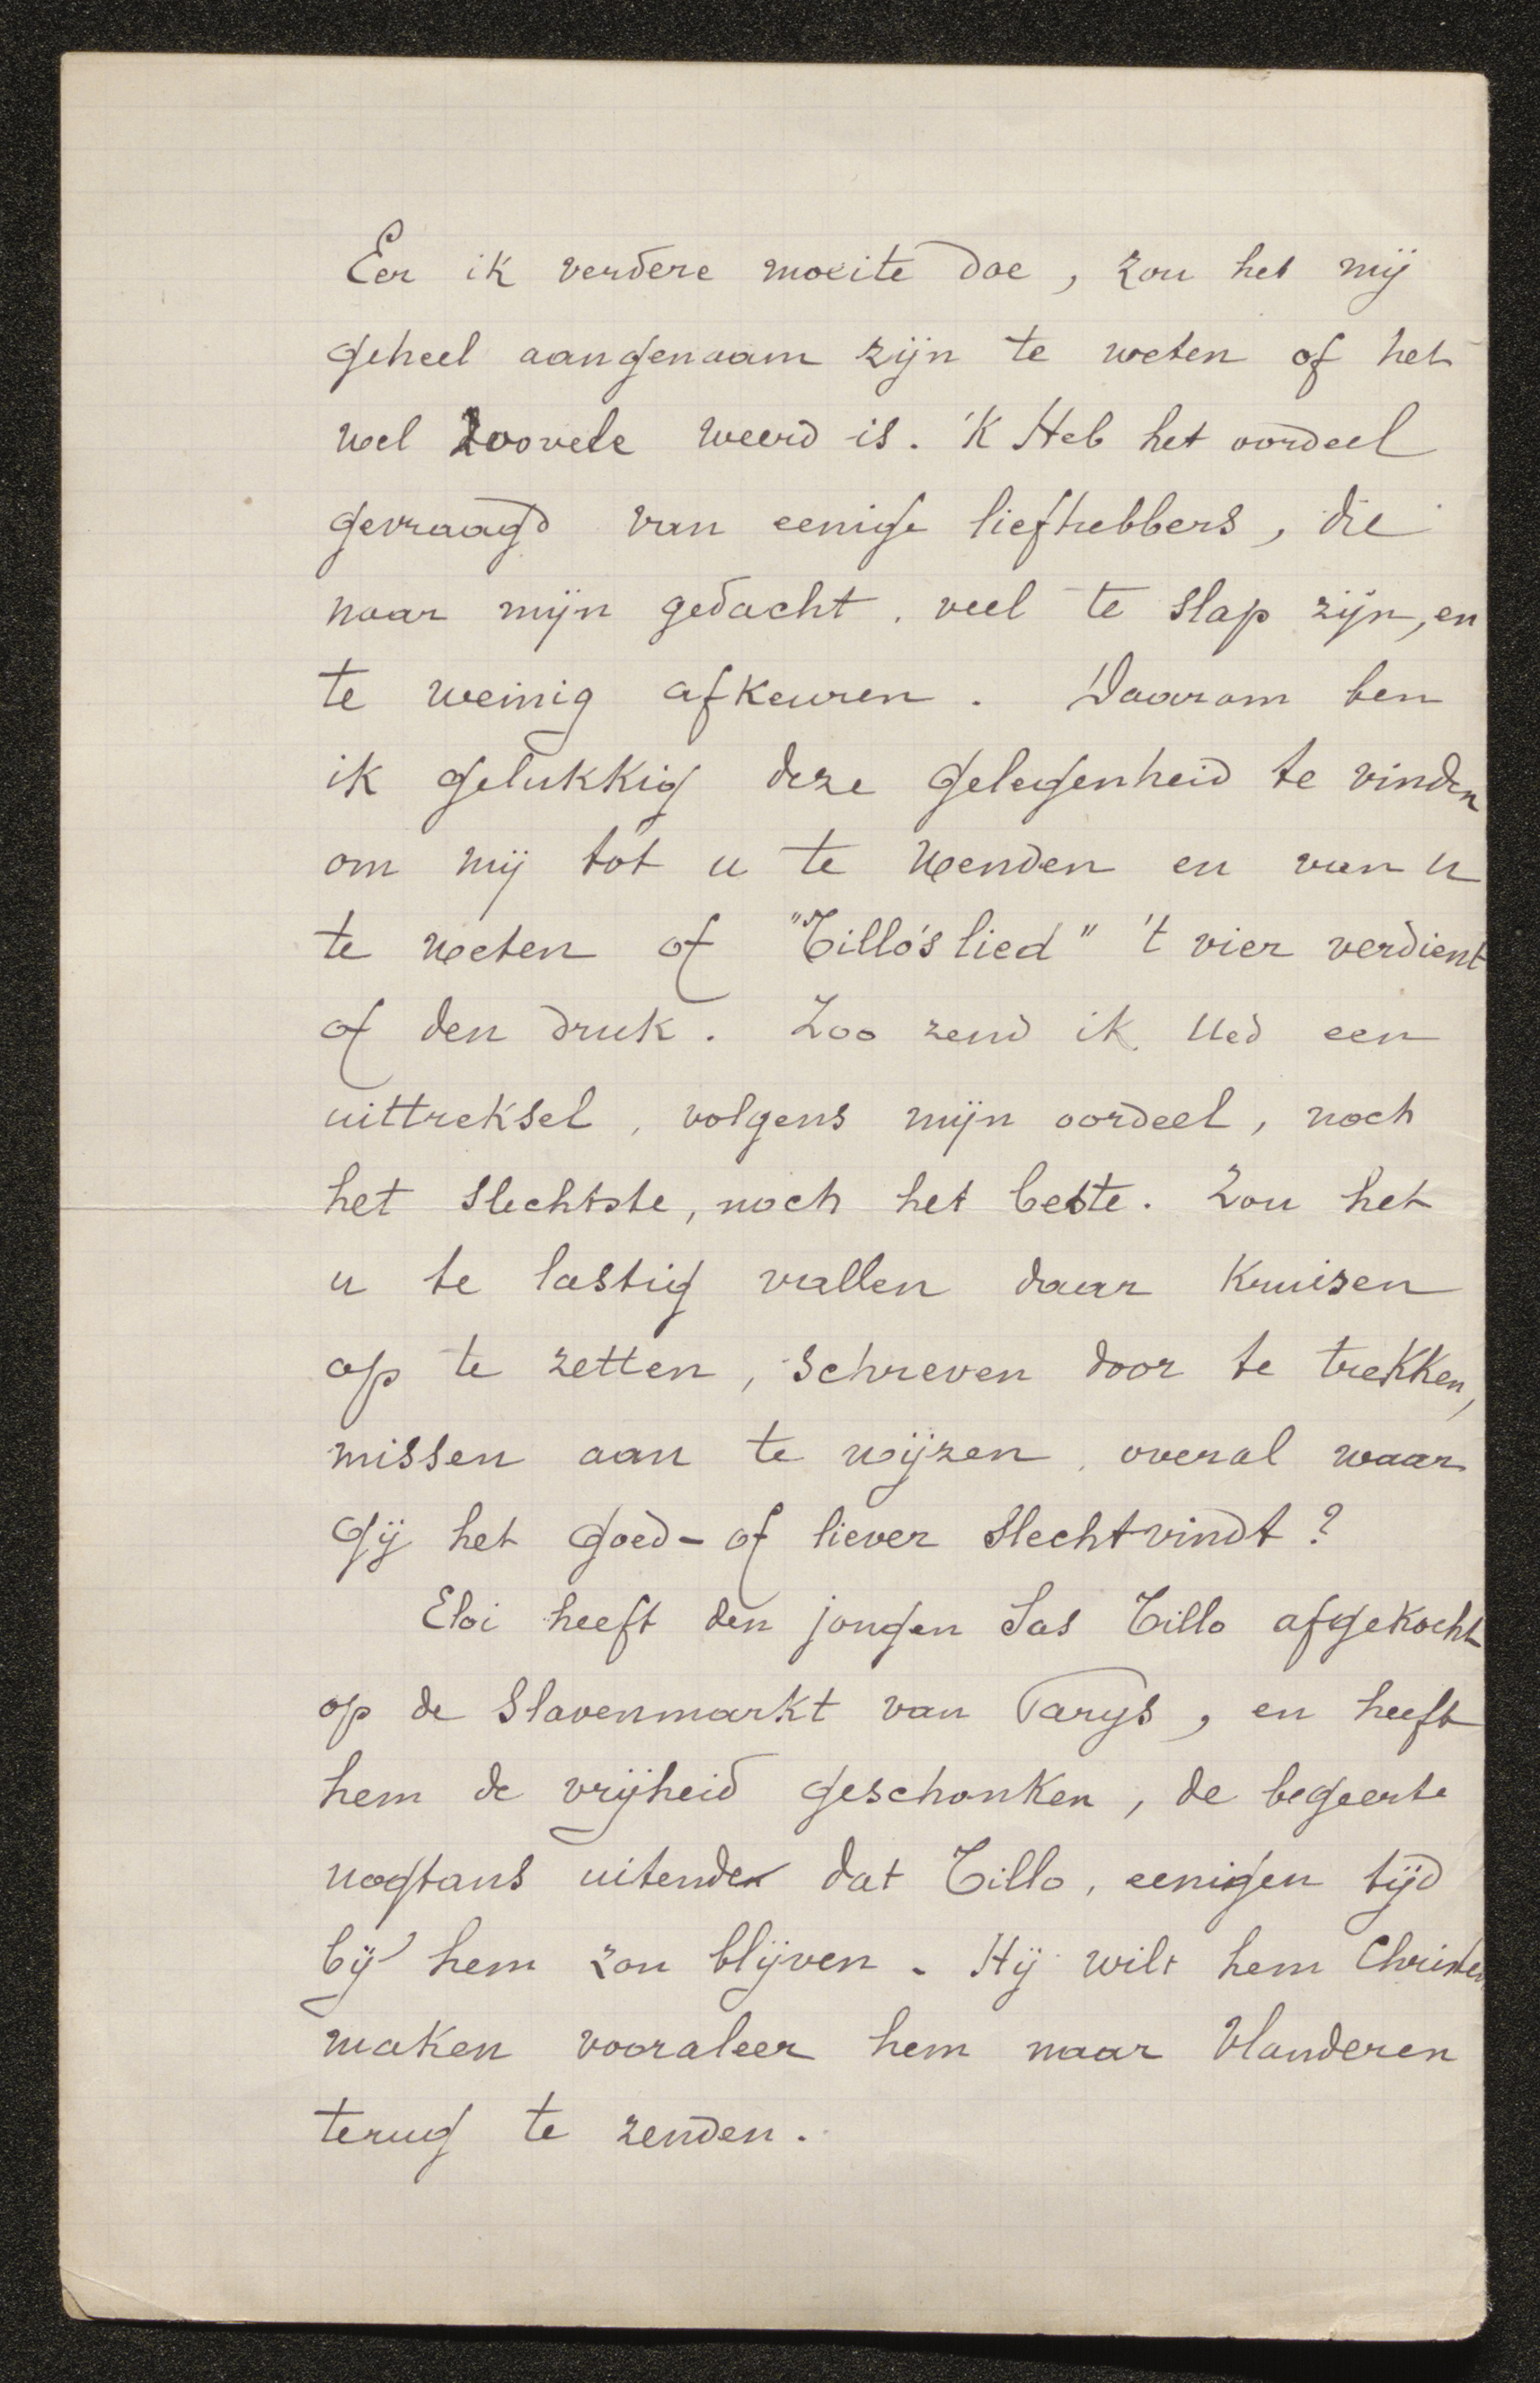 Eer ik verdere moeite doe, zou het mij
geheel aangenaam zijn te weten of het
wel zoovele weerd is. 'K Heb het oordeel
gevraagd van eenige liefhebbers, die
naar mijn gedacht, veel te slap zijn, en
te weinig afkeuren. Daarom ben
ik gelukkig deze gelegenheid te vinden
om mij tot u te wenden en van u
te weten of "Tillo's lied" 't vier verdient
of den druk. Zoo zend ik Ued een
uittreksel, volgens mijn oordeel, noch
het slechtste, noch het beste. Zou het
u te lastig vallen daar kruisen
op te zetten, schreven door te trekken,
missen aan te wijzen, overal waar
gij het goed- of liever slechtvindt?
Eloi heeft den jongen Sas Tillo afgekocht
op de slavenmarkt van Parijs, en heeft
hem de vrijheid geschonken, de begeerte
nogtans uitende dat Tillo, eenigen tijd
bij hem zou blijven. Hij wilt hem Christen
maken vooraleer hem naar Vlanderen
terug te zenden.